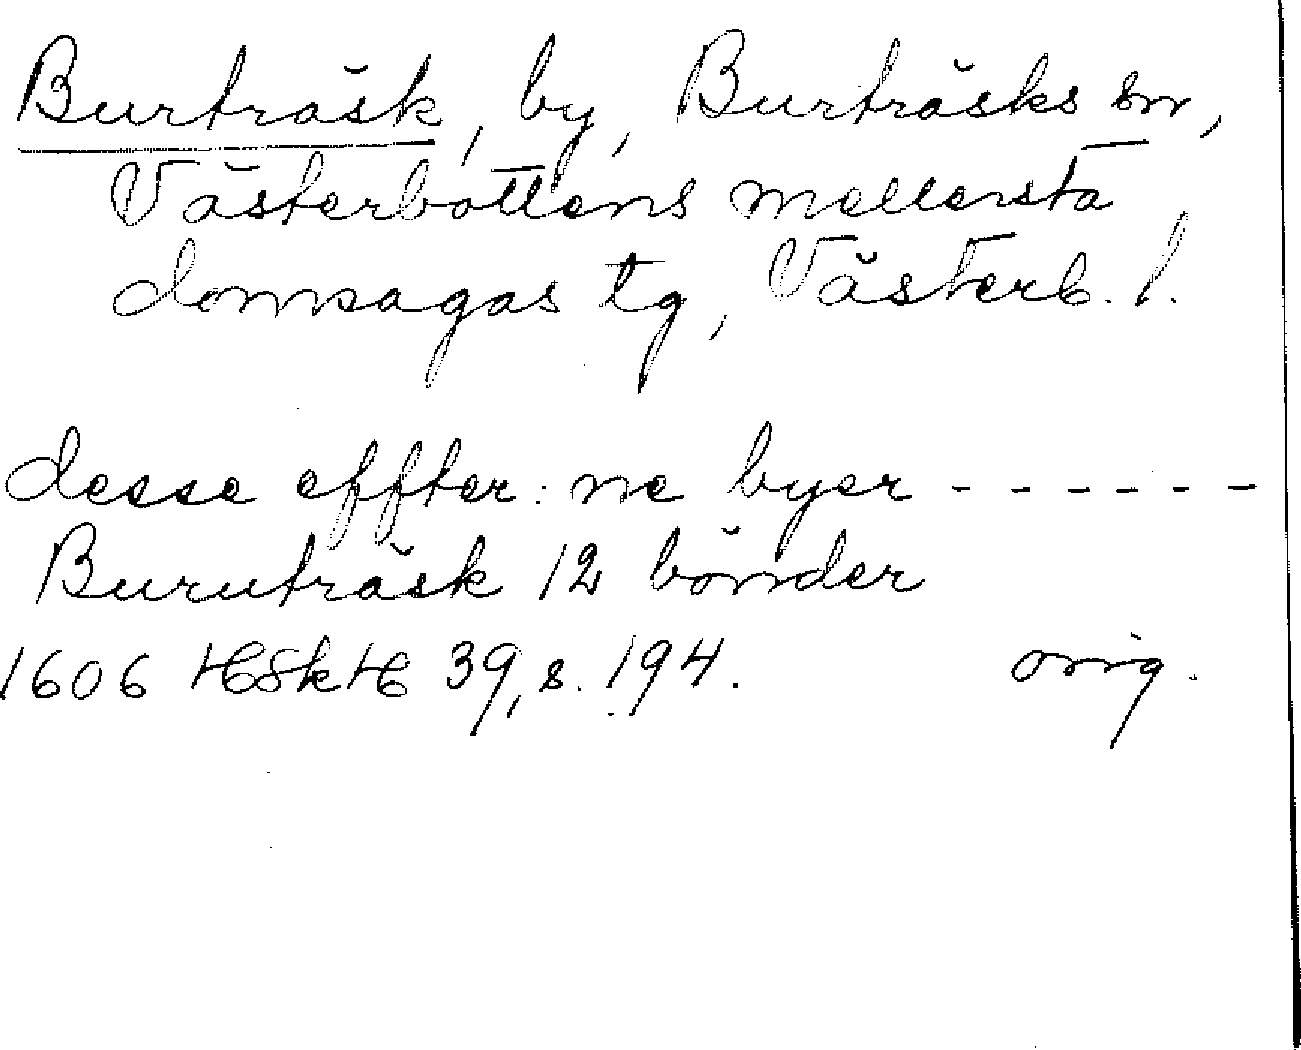 Burträsk, by, Burträsks sn,
Västerbottens mellersta
domsagas tg, Västerb. l.
desse effter: ne byer - - - - - -
Buruträsk 12 bönder
1606 HSkH 39, s. 194. orig.